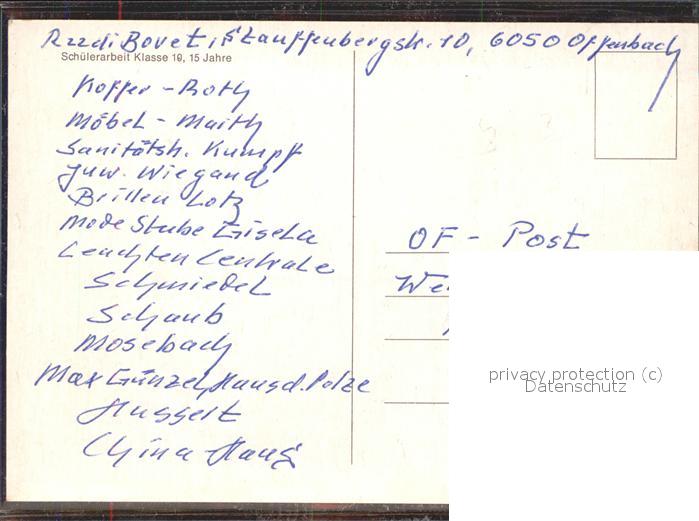 Ruudi Bovet, Stauffenbergstr. 10, 6050 Offenbach
Schülerarbeit Klasse 10, 15 Jahre
Koffer - Roth
Möbel - Maith
Sanitätsh. Kumpf
Juw. Wiegand
Brillen Lotz
Mode Stube Gisela
Leuchten Centrale
Schmiedel
Schaub
Mosebach
Max Günzel, Haus d. Pelze
Huggert
China-Haus
OF - Post
We
privacy protection (c)
Datenschutz